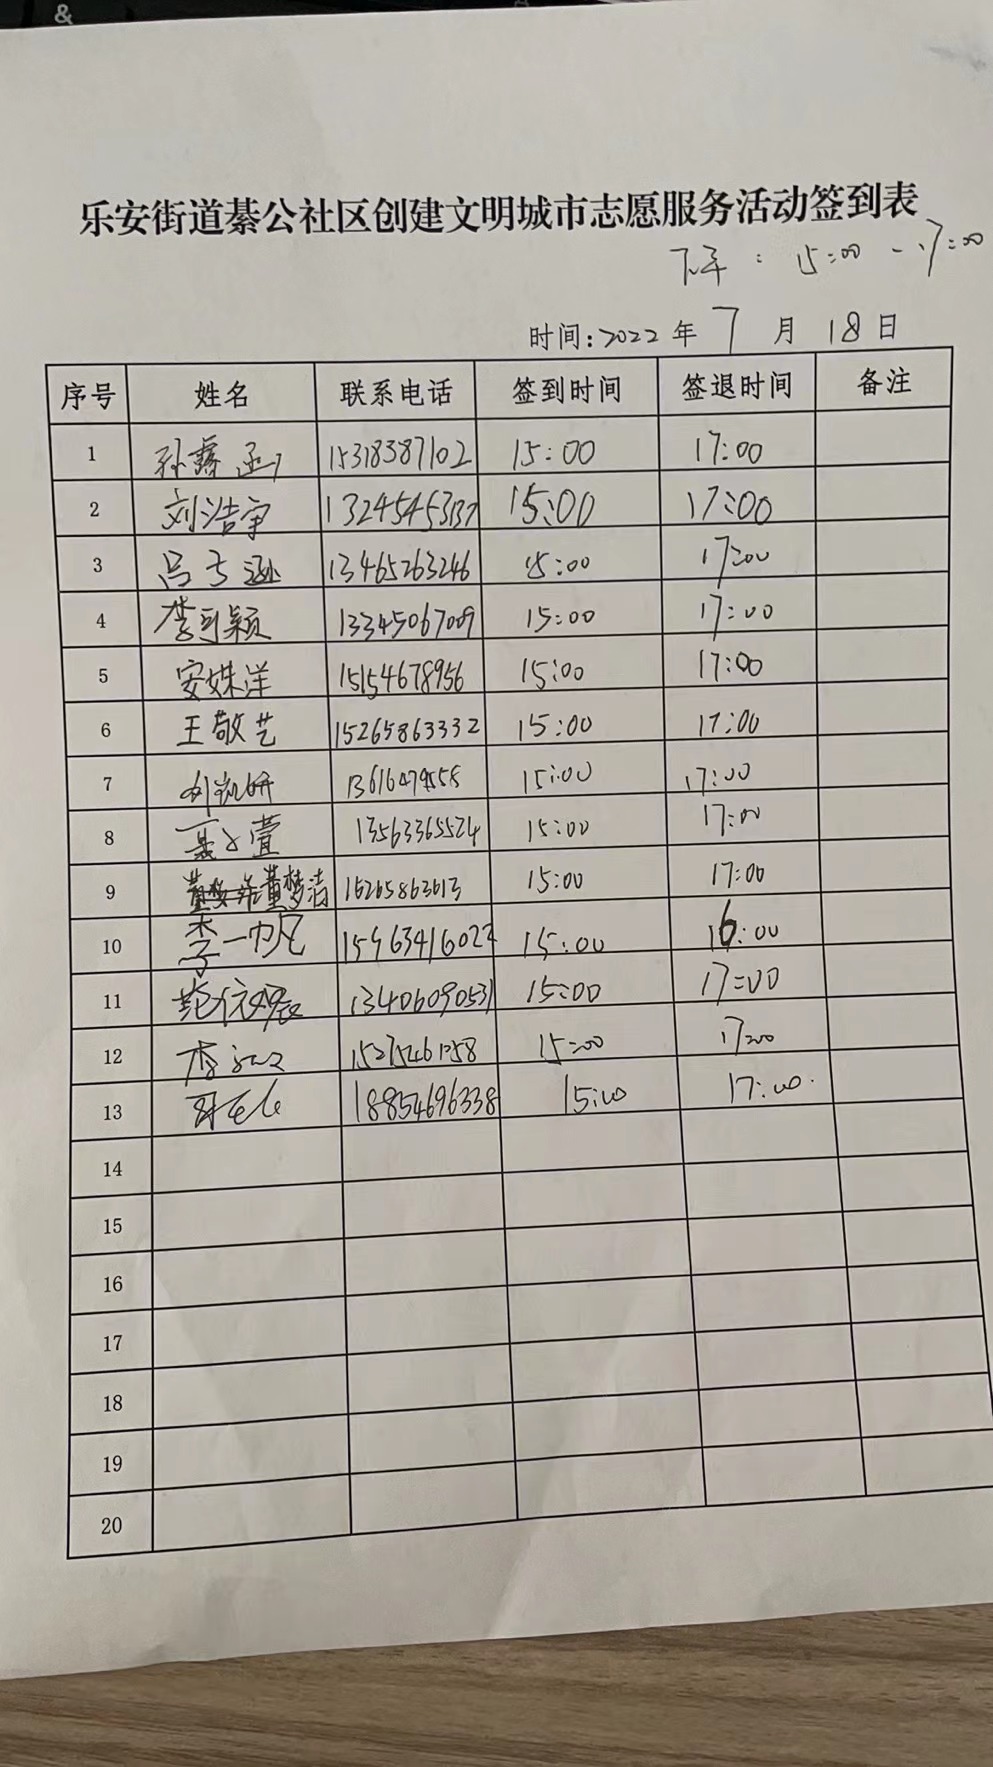 &
乐安街道綦公社区创建文明城市志愿服务活动签到表
下午：15:00-17:00
时间:2022年7月18日
序号 姓名 联系电话 签到时间 签退时间 备注
1 孙 15318387102 15:00 17:00
2 刘浩宇 15:00 17:00
3 吕 13465263246 15:00 17:00
4 李 颖 13345067009 15:00 17:00
5 安姝洋 15154678956 15:00 17:00
6 王敬艺 15265863332 15:00 17:00
7 15:00 17:00
8 萱 13563365524 15:00 17:00
9 董梦洁 15:00 17:00
10 李一帆 15:00 16:00
11 范 13406090531 15:00 17:00
12 李 15:00 17:00
13 18854696338 15:00 17:00.
14
15
16
17
18
19
20